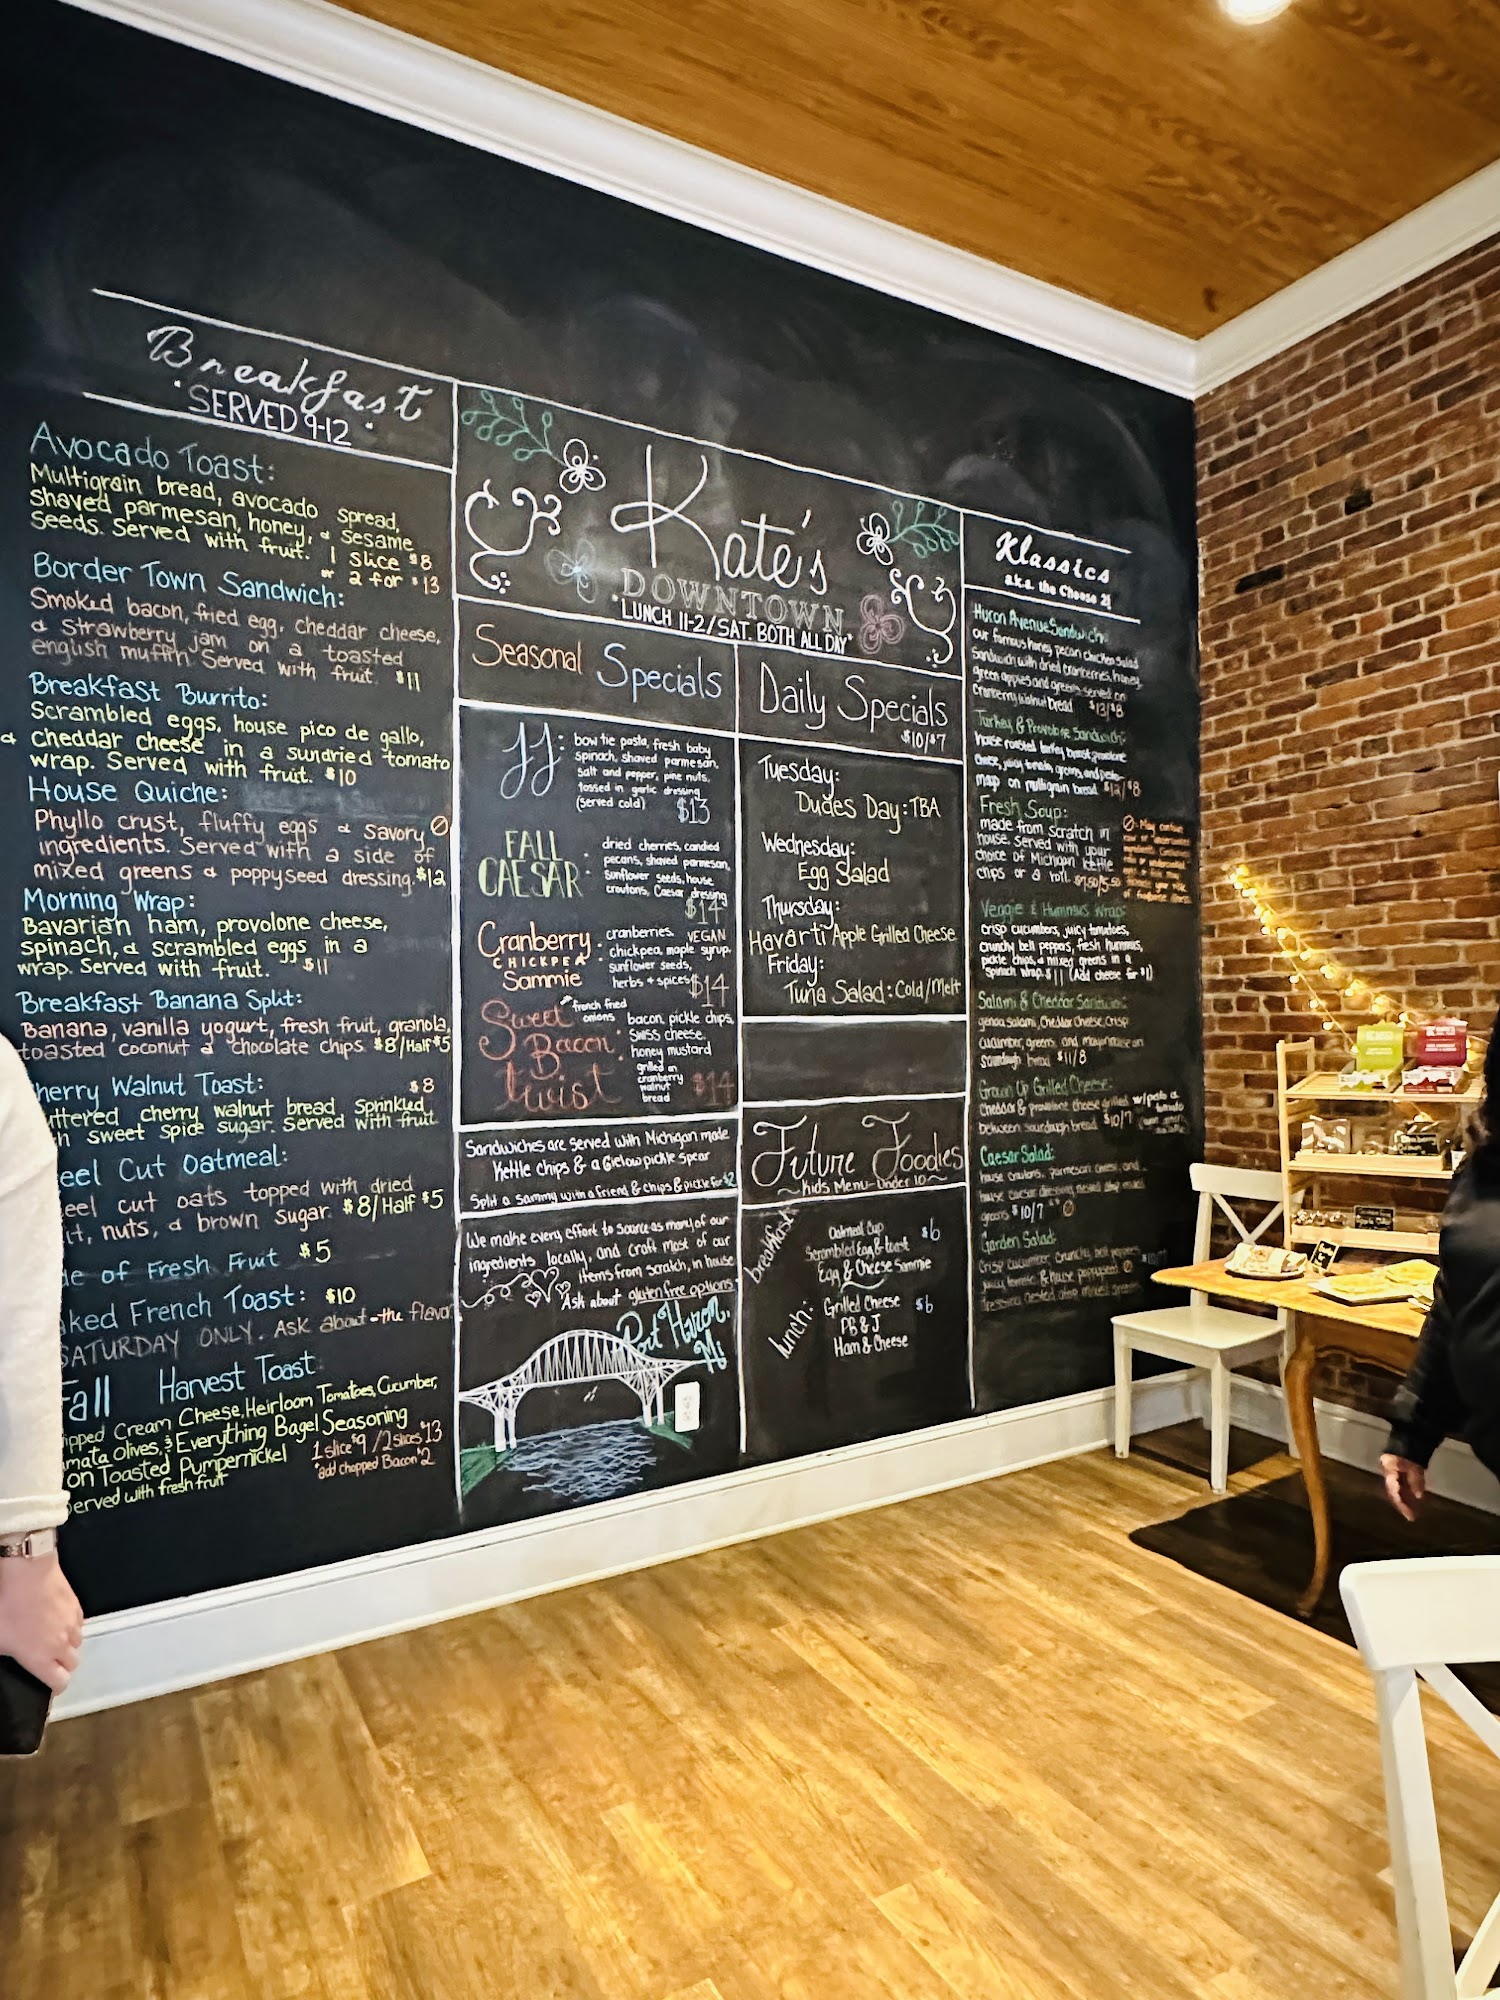 Breakfast
SERVED 9-12
Avocado Toast:
Multigrain bread, avocado spread,
shaved parmesan, honey, & sesame
seeds. Served with fruit. 1 slice $8
or 2 for $13
Border Town Sandwich:
Smoked bacon, fried egg, cheddar cheese,
& strawberry jam on a toasted
english muffin. Served with fruit. $11
Breakfast Burrito:
Scrambled eggs, house pico de gallo,
& cheddar cheese in a sundried tomato
wrap. Served with fruit. $10
House Quiche:
Phyllo crust, fluffy eggs & savory
ingredients. Served with a side of
mixed greens & poppyseed dressing. $12
Morning Wrap:
Bavarian ham, provolone cheese,
spinach, & scrambled eggs in a
wrap. Served with fruit. $11
Breakfast Banana Split:
Banana, vanilla yogurt, fresh fruit, granola,
toasted coconut & chocolate chips. $8/Half $5
herry Walnut Toast: $8
ttered cherry walnut bread sprinkled
h sweet spice sugar. Served with fruit
eel Cut Oatmeal:
eel cut oats topped with dried
it, nuts, & brown sugar. $8/Half $5
de of Fresh Fruit $5
ked French Toast: $10
SATURDAY ONLY. Ask about the flavo
Fall Harvest Toast
ipped Cream Cheese, Heirloom Tomatoes, Cucumber,
mata Olives, & Everything Bagel Seasoning
on Toasted Pumpernickel 1 slice $9 / 2 slices $13
served with fresh fruit *add chopped Bacon $2
Kate's
DOWNTOWN
*LUNCH 11-2/SAT. BOTH ALL DAY*
Seasonal Specials
JJ: bow tie pasta, fresh baby
spinach, shaved parmesan,
salt and pepper, pine nuts,
tossed in garlic dressing
(served cold) $13
FALL CAESAR: dried cherries, candied
pecans, shaved parmesan,
sunflower seeds, house
croutons, Caesar dressing
$14
Cranberry CHICKPEA Sammie: cranberries, VEGAN
chickpea, maple syrup,
sunflower seeds,
herbs + spices $14
Sweet Bacon B. Twist: french fried
onions bacon, pickle chips,
swiss cheese,
honey mustard
grilled on
cranberry
walnut
bread $14
Sandwiches are served with Michigan made
Kettle chips & a Gielow pickle spear
Split a sammy with a friend & chips & pickle for $2
We make every effort to source as many of our
ingredients locally, and craft most of our
items from scratch, in house
Ask about gluten free options
Port Huron,
Mi
Daily Specials
$10/$7
Tuesday:
Dudes Day: TBA
Wednesday:
Egg Salad
Thursday:
Havarti Apple Grilled Cheese
Friday:
Tuna Salad: Cold/Melt
Future Foodies
~Kids Menu-Under 10~
breakfast:
Oatmeal Cup $6
Scrambled Egg & toast
Egg & Cheese Sammie
lunch:
Grilled Cheese $6
PB & J
Ham & Cheese
Klassics
a.k.a. the Choose 2!
Huron Avenue Sandwich:
our famous honey pecan chicken salad
sandwich with dried cranberries, honey,
green apples and greens served on
cranberry walnut bread $13/$8
Turkey & Provolone Sandwich:
house roasted turkey breast, provolone
cheese, juicy tomato, greens, and pesto-
mayo on multigrain bread $12/$8
Fresh Soup:
made from scratch in
house. Served with your
choice of Michigan kettle
chips or a roll. $7.50/5.50
Veggie & Hummus Wrap:
crisp cucumbers, juicy tomatoes,
crunchy bell peppers, fresh hummus,
pickle chips, & mixed greens in a
spinach wrap. $11 (Add cheese for $1)
Salami & Cheddar Sandwich:
genoa salami, cheddar cheese, crisp
cucumber, greens, and mayonnaise on
sourdough bread $11/8
Grown Up Grilled Cheese:
cheddar & provolone cheese grilled
between sourdough bread $10/7
Caesar Salad:
house croutons, parmesan cheese, and
house caesar dressing nested atop mixed
greens $10/7
Garden Salad:
crisp cucumber, crunchy bell peppers
juicy tomato & house poppyseed
dressing nested atop mixed greens